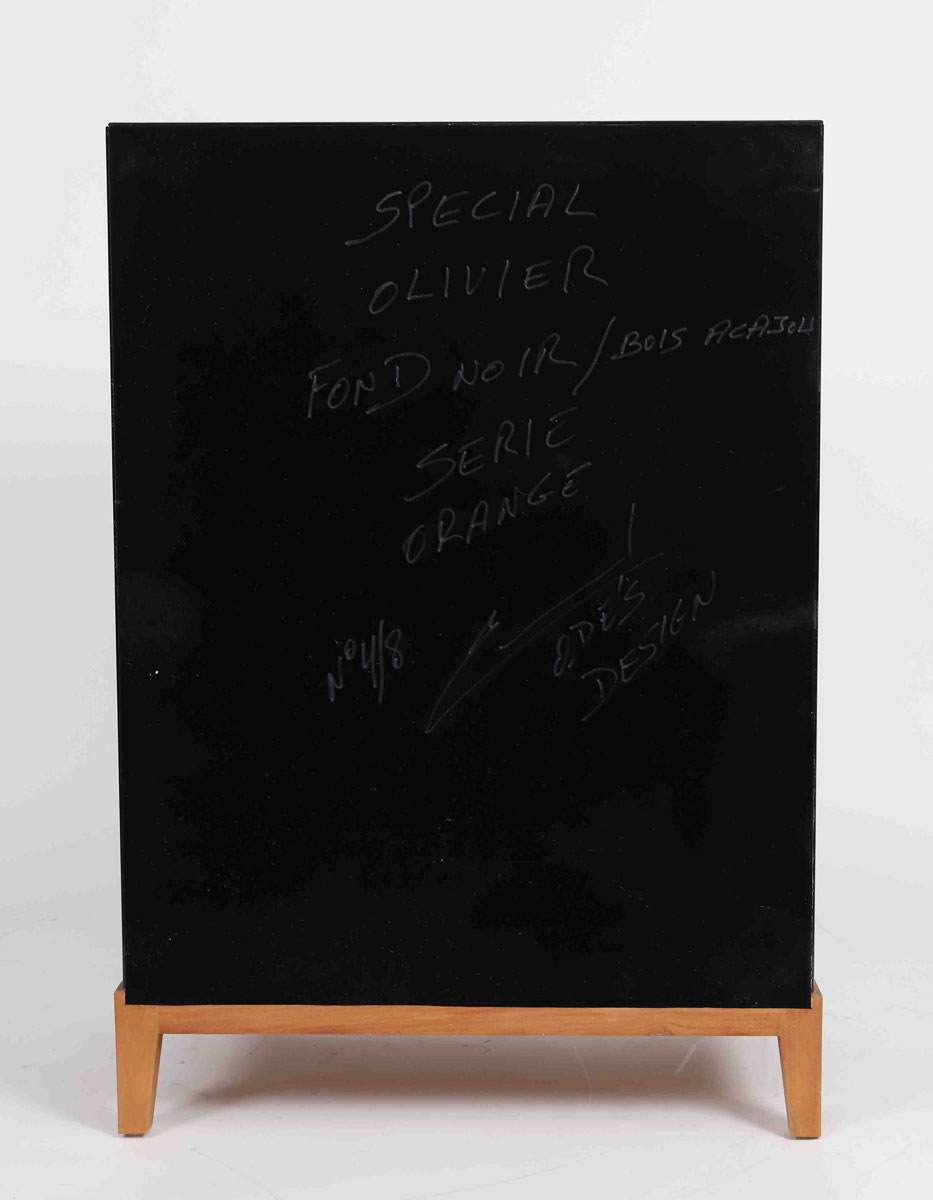 SPECIAL
OLIVIER
FOND NOIR / BOIS ACAJOU
SERIE
ORANGE
N° 4/8
DESIGN